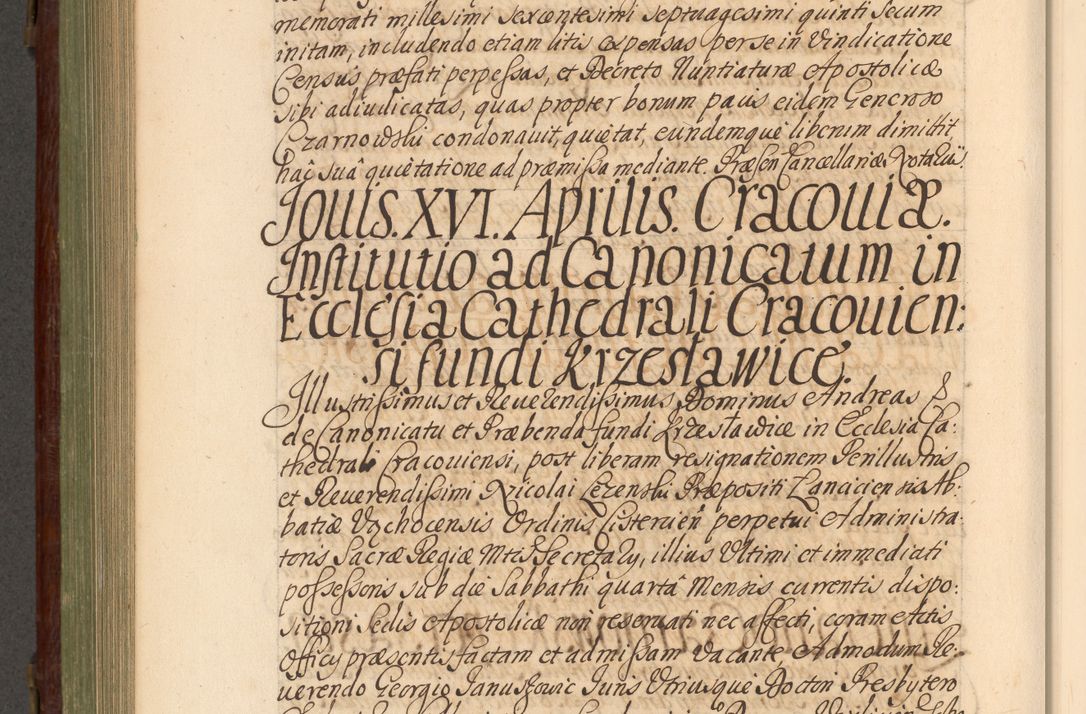 memorati millesimi sexcentesimi septuagesimi quinti secum
initam, includendo etiam litis expensas per se in vindicatione
Census præfati perpessas, et Decreto Nuntiaturæ Apostolicæ
sibi adiudicatas, quas propter bonum pacis eidem Generoso
Czarnowski condonauit, quietat, eundemque liberum dimittit
hac suâ quietatione ad præmissa mediante. Præsen Cancellariæ Notarijs.
Jouis. XVI. Aprilis. Cracouiæ.
Institutio ad Canonicatum in
Ecclesia Cathedrali Cracouien:
si fundi Krzesławice
Illustrissimus et Reuerendissimus Dominus Andreas
de Canonicatu et Præbenda fundi Krzesławice in Ecclesia Ca:
thedrali Cracouiensi, post liberam resignationem Perillustris
et Reuerendissimi Nicolai Præpositi Lanciciensis Ab:
batiæ Vąchocensis Ordinis Cistercien perpetui Administra:
toris Sacræ Regiæ Mtis Secretarij, illius Vltimi et immediati
possessoris sub die Sabbathi quartâ Mensis currentis dispo:
sitioni Sedis Apostolicæ non reseruati nec affecti, coram Actis
Officij præsentis factam et admissam vacante, Admodum Re:
uerendo Georgio Januszowic Juris Vtriusque Doctori Presbytero